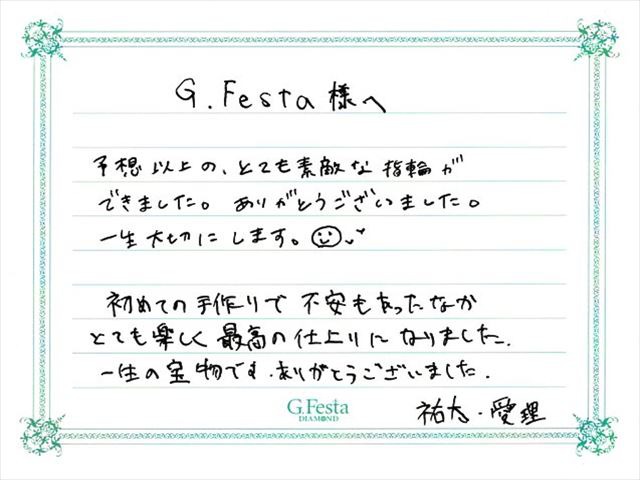 G.Festa様へ
予想以上の、とても素敵な指輪が
できました。ありがとうございました。
一生大切にします。
初めての手作りで不安もあったなか
とても楽しく最高の仕上りになりました.
一生の宝物です.ありがとうございました.
G.Festa
DIAMOND
祐太・愛理